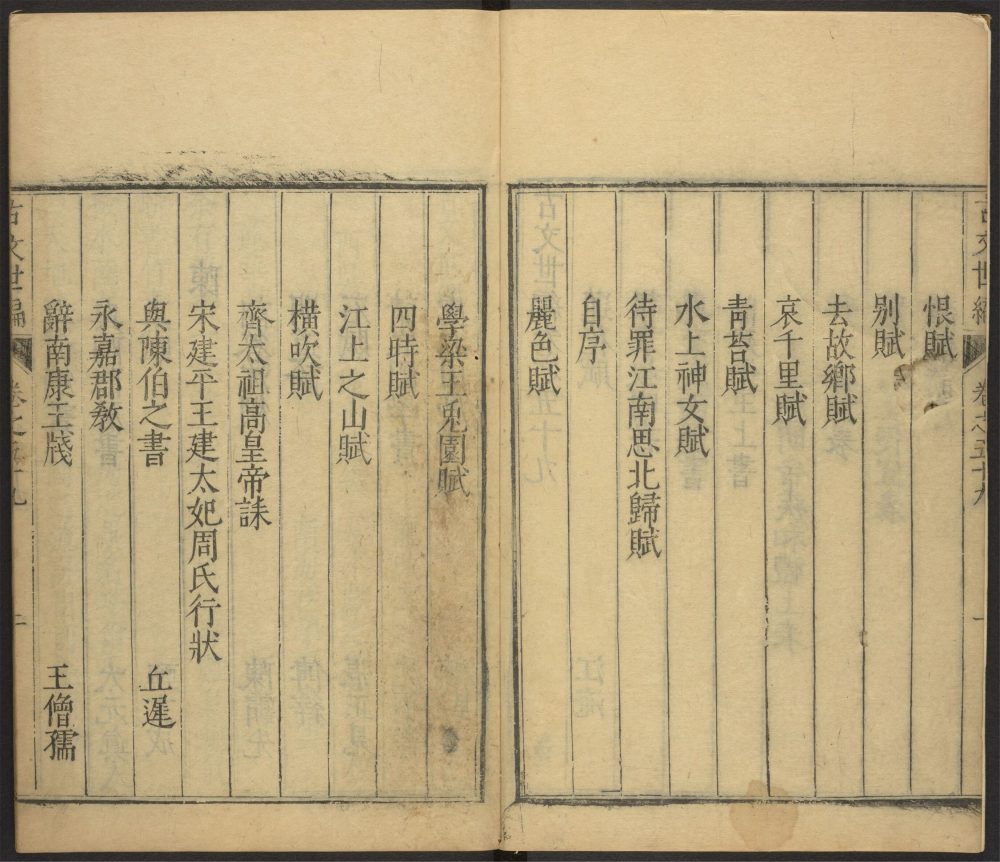 古文世編 卷之五十九 一
恨賦
別賦
去故鄉賦
哀千里賦
青苔賦
水上神女賦
待罪江南思北歸賦
自序
麗色賦
學梁王兎園賦
四時賦
江上之山賦
橫吹賦
齊太祖高皇帝誄
宋建平王建太妃周氏行狀
與陳伯之書 丘遲
永嘉郡教
辭南康王牋 王僧孺
古文世編 卷之五十九 二